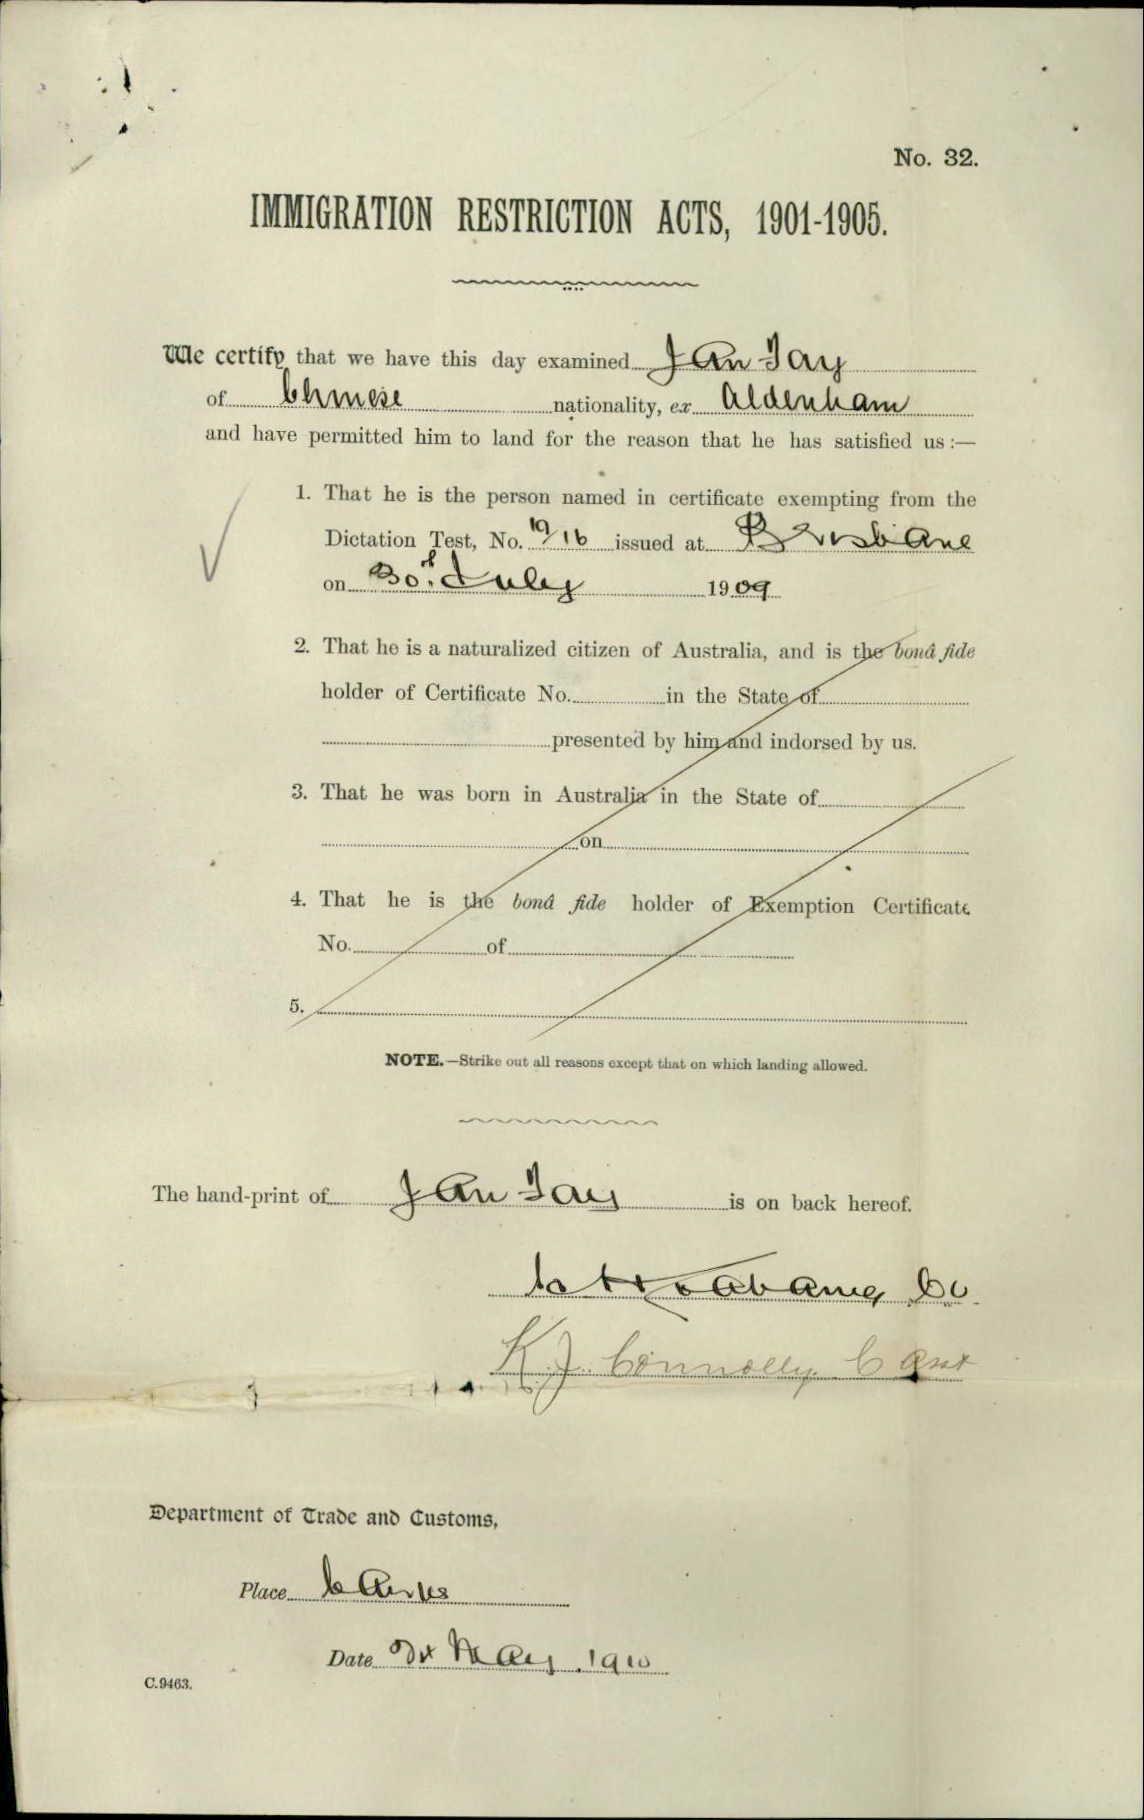 No. 32.
IMMIGRATION RESTRICTION ACTS, 1901-1905.
We certify that we have this day examined Jan Tay
of Chinese nationality, ex Aldenham
and have permitted him to land for the reason that he has satisfied us :—
1. That he is the person named in certificate exempting from the
Dictation Test, No. 19/16 issued at Brisbane
on 30th July 1909
2. That he is a naturalized citizen of Australia, and is the bonâ fide
holder of Certificate No. in the State of
presented by him and indorsed by us.
3. That he was born in Australia in the State of
on
4. That he is the bonâ fide holder of Exemption Certificate
No. of
5.
NOTE.—Strike out all reasons except that on which landing allowed.
The hand-print of Jan Tay is on back hereof.
K. J. Connolly C Asst
Department of Trade and Customs,
Place Cairns
Date May 1910
C.9463.